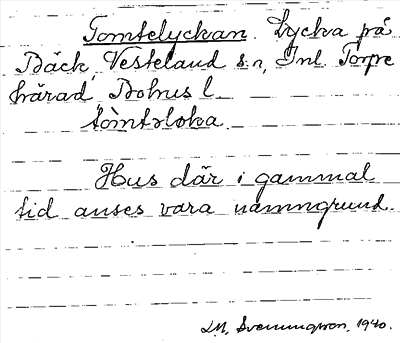 Tomtelyckan. Lycka på
Bäck, Vesteland s:n, Inl. Torpe
härad, Bohus l.
tòmtəloka.
Hus där i gammal
tid anses vara namngrund.
J.M. Svenningson, 1940.